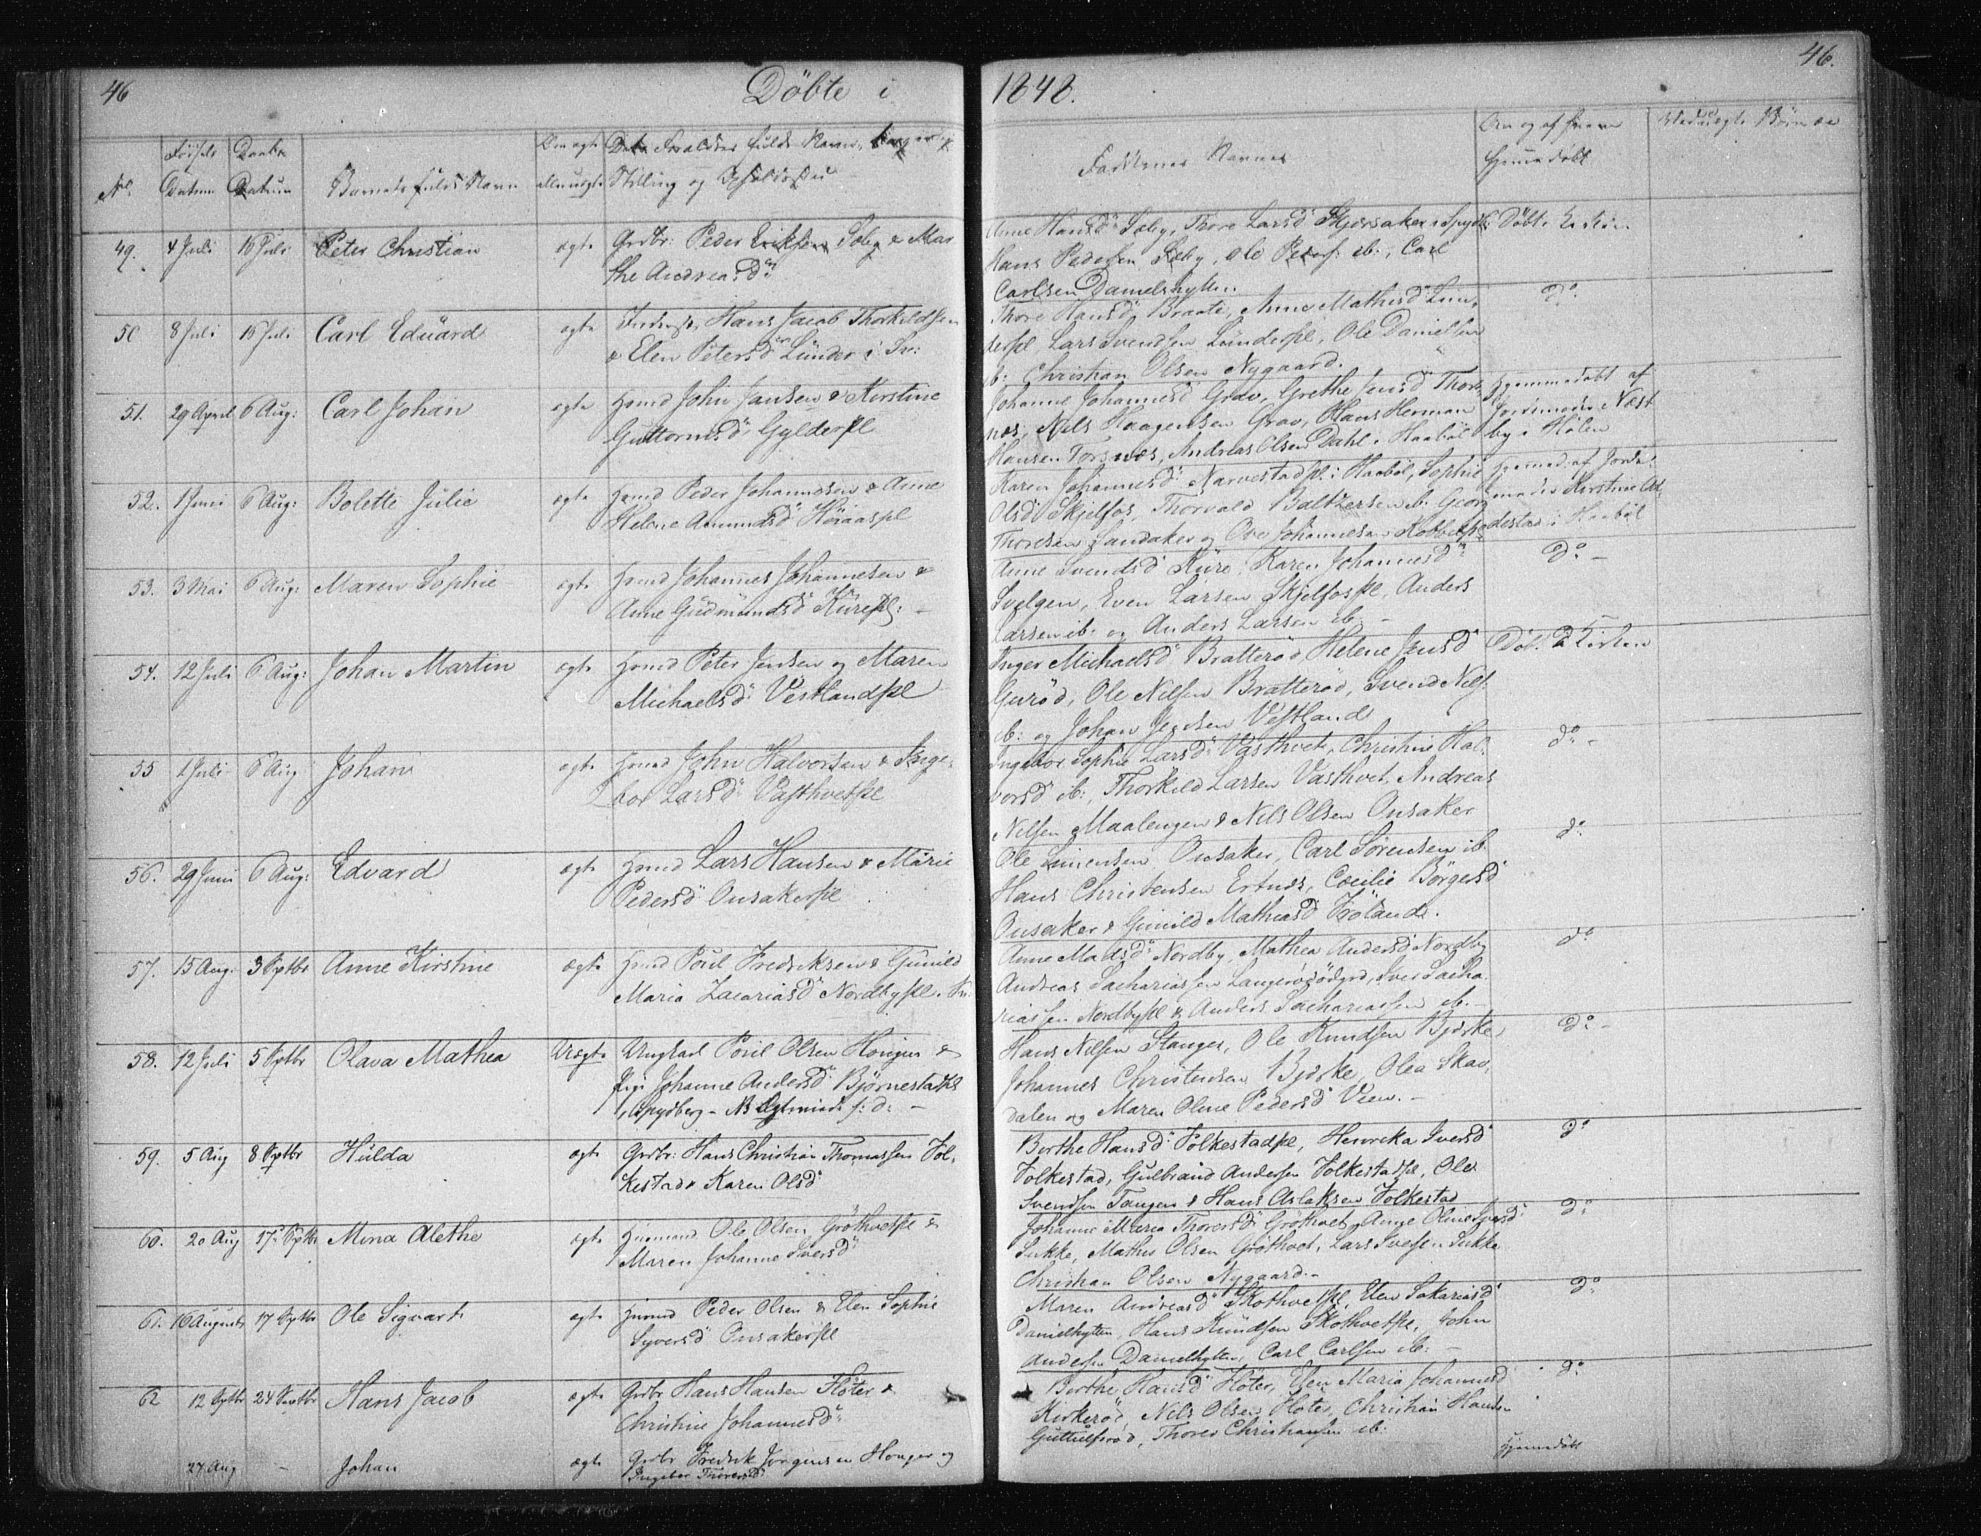 46
Døbte i
1848.
46.
No.
Fødsels
Datum
Daabs
Datum
Barnets fulde Navn
Om ægte
eller uægte
Forældres fulde Navne,
Stilling og Opholdssted
Faddernes Navne
Om og af hvem
hjemmedøbt
49.
4 Juli
16 Juli
Peter Christian
ægte
Grdbr: Peder Eriksen Sæby & Mar
the Andreasd:
Anne Hansd: Sæby, Thore Larsd
Hans Pedersen Sæby, Ole Peders: ib:, Carl
Carlsen Danielshytten
Døbt i Kirken
50
8 Juli
16 Juli
Carl Eduard
ægte
Hans Jacob Thorkildsen
& Elen Petersd: Lunder i
Thore Hansd: Braate, Anne Mathisd: Lun
derpl Lars Svendsen Lunderpl, Ole Danielsen
ib: Christian Olsen Nygaard.
Do
51.
29 April
6 Aug:
Carl Johan
ægte
Huusmd John Jansen & Kirstine
Guttormsd: Gylderpl
Johanne Johannesd Grav, Grethe Jensd Thors
næs, Nils Haagensen Grav, Hans Herman
Hansen Torsnæs, Andreas Olsen Dahl i Haabøl
Hjemmedøbt af
Jordmoder Næst
by i Hølen
52.
1 Juni
6 Aug:
Bolette Julie
ægte
Huusmd Peder Johannesen & Anne
Helene Amundsd: Høiaaspl
Karen Johannesd: Narvestadpl i Haabøl, Sophie
Olsd: Skjelfos, Thorvald Baltzersen ib. Georg
Thoresen Sandaker og Ove Johannesen
Hjemmed. af Jorde
moder Kirstine
destad i Haabøl
53.
3 Mai
6 Aug:
Maren Sophie
ægte
Huusmd Johannes Johannesen &
Anne Gudmundsd: Kurepl: –
Anne Svendsd: Kure, Karen Johannesd:
Svelgen, Even Larsen Skjelfospl, Anders
Larsen ib: og Anders Larsen ib. –
Do –
54.
12 Juli
6 Aug:
Johan Martin
ægte
Huusmd Peter Jensen og Maren
Michaelsd: Vestlandspl
Inger Michaelsd: Bratterød, Helene Jensd
Gurød, Ole Nilsen Bratterød, Svend Nils:
ib: og Johan Jensen Vestland
Døbt i Kirken
55
1 Juli
6 Aug
Johan
ægte
Huusmd John Halvorsen & Inge
bor Larsd: Vasthvetpl
Ingebor Sophie Larsd: Vasthvet, Christine Hal
vorsd ib:, Thorkild Larsen Vasthvet, Andreas
Nilsen Maalengen & Nils Olsen Onsaker
Do –
56.
29 Juni
6 Aug:
Edvard
ægte
Huusmd Lars Hansen & Marie
Pedersd: Onsakerpl
Ole Simensen Onsaker, Carl Sørensen ib.
Hans Christensen Ertnæs, Cæcilie Børgersd
Onsaker & Gunild Mathiasd Frøland.
Do
57.
15 Aug:
3 Septbr
Anne Kirstine
ægte
Huusmd Poul Fredriksen & Gunild
Maria Zacariasd: Nordbypl.
Anne Madsd: Nordby, Mathea Andersd Nordby
Andreas Sachariassen Langerødødgrd, Iver Sacha
riassen Nordbypl & Anders Sachariassen ib. –
Do
58.
12 Juli
5 Septbr
Olava Mathea
Uægte
Ungkarl Poul Olsen Honger &
Pige Johanne Andersd: Bjørnestadpl
i Spydberg –
Hans Nilsen Stanger, Ole Knudsen Bjørke,
Johannes Christensen Bjørke, Olea Skav
dalen og Maren Oline Pedersd Veen. –
Do –
59.
5 Aug
8 Septbr
Hulda
ægte
Grdbr: Hans Christian Thomassen Fol
kestad & Karen Olsd
Berthe Hansd: Folkestadpl, Henrika Iversd
Folkestad, Gulbrand Andersen Folkestadpl, Ole
Svendsen Tangen & Hans Aslaksen Folkestad
Do
60.
20 Aug
17 Septbr
Mina Alethe
ægte
Huusmand Ole Olsen Grøthvetpl &
Maren Johanne Iversd:
Johanne Maria Thoresd: Grøthvet, Ange Oline Iversd:
Sukke, Mathis Olsen Grøthvet, Lars Iversen Sukke
Christian Olsen Nygaard. –
Do
61.
16 August
17 Septbr
Ole Sigvart
ægte
Huusmd Peder Olsen & Elen Sophie
Syversd: Onsakerpl
Maren Andreasd: Skothvetpl, Elen Sakariasd
Danielhytten, Hans Knudsen Skothvetpl, John
Andersen Danielhytten, Carl Carlsen ib: –
Do
62
12 Septbr
24 Septbr
Hans Jacob
ægte
Grdbr Hans Hansen Fløter &
Christine Johannesd:
Berthe Hansd: Fløter, Elen Maria Johannesd
Kirkerød, Nils Olsen Fløter, Christian Hansen
Guttulsrød, Thores Christiansen ib:
Do
27 Aug
–
Johan
ægte
Grdbr Fredrik Jørgensen Honger og
Ingebor Thoresd:
Hjemmedøbt